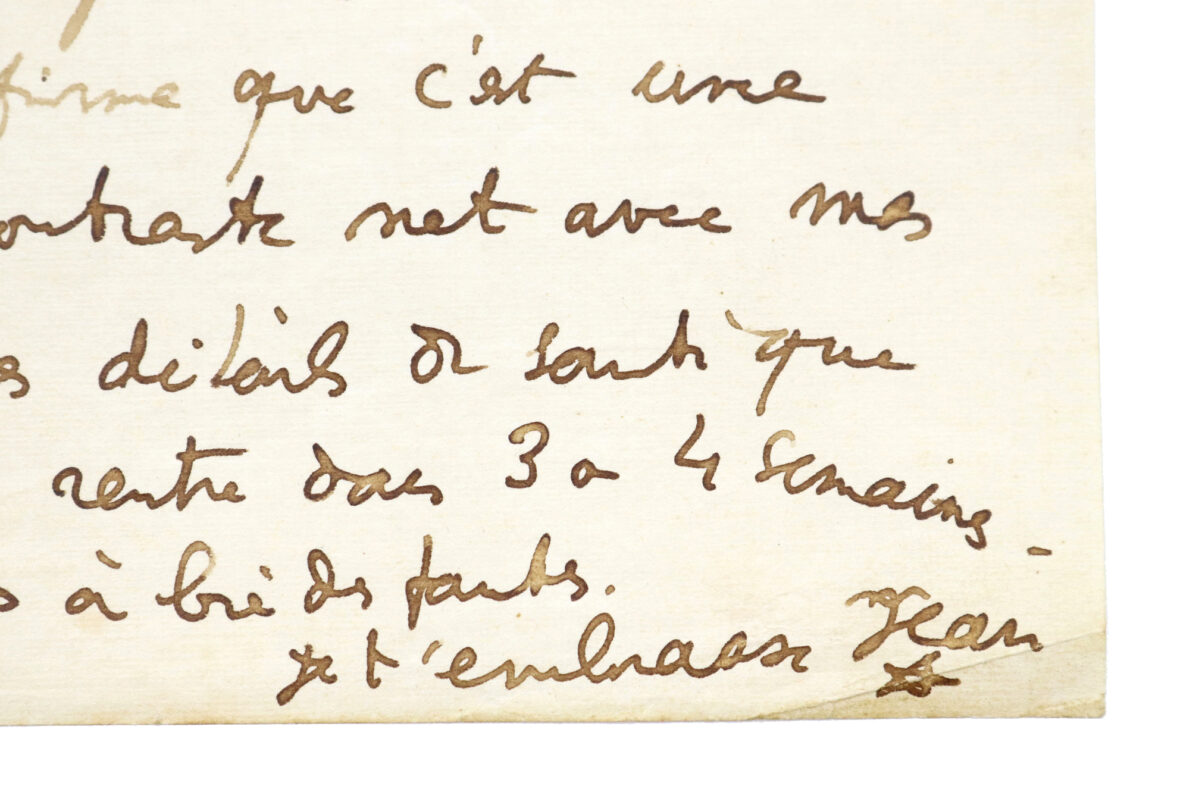 firme que c'est une
ontraste net avec mes
es détails de santé que
rentre dans 3 a 4 semaines -
s à des fautes.
je t'embrasse Jean